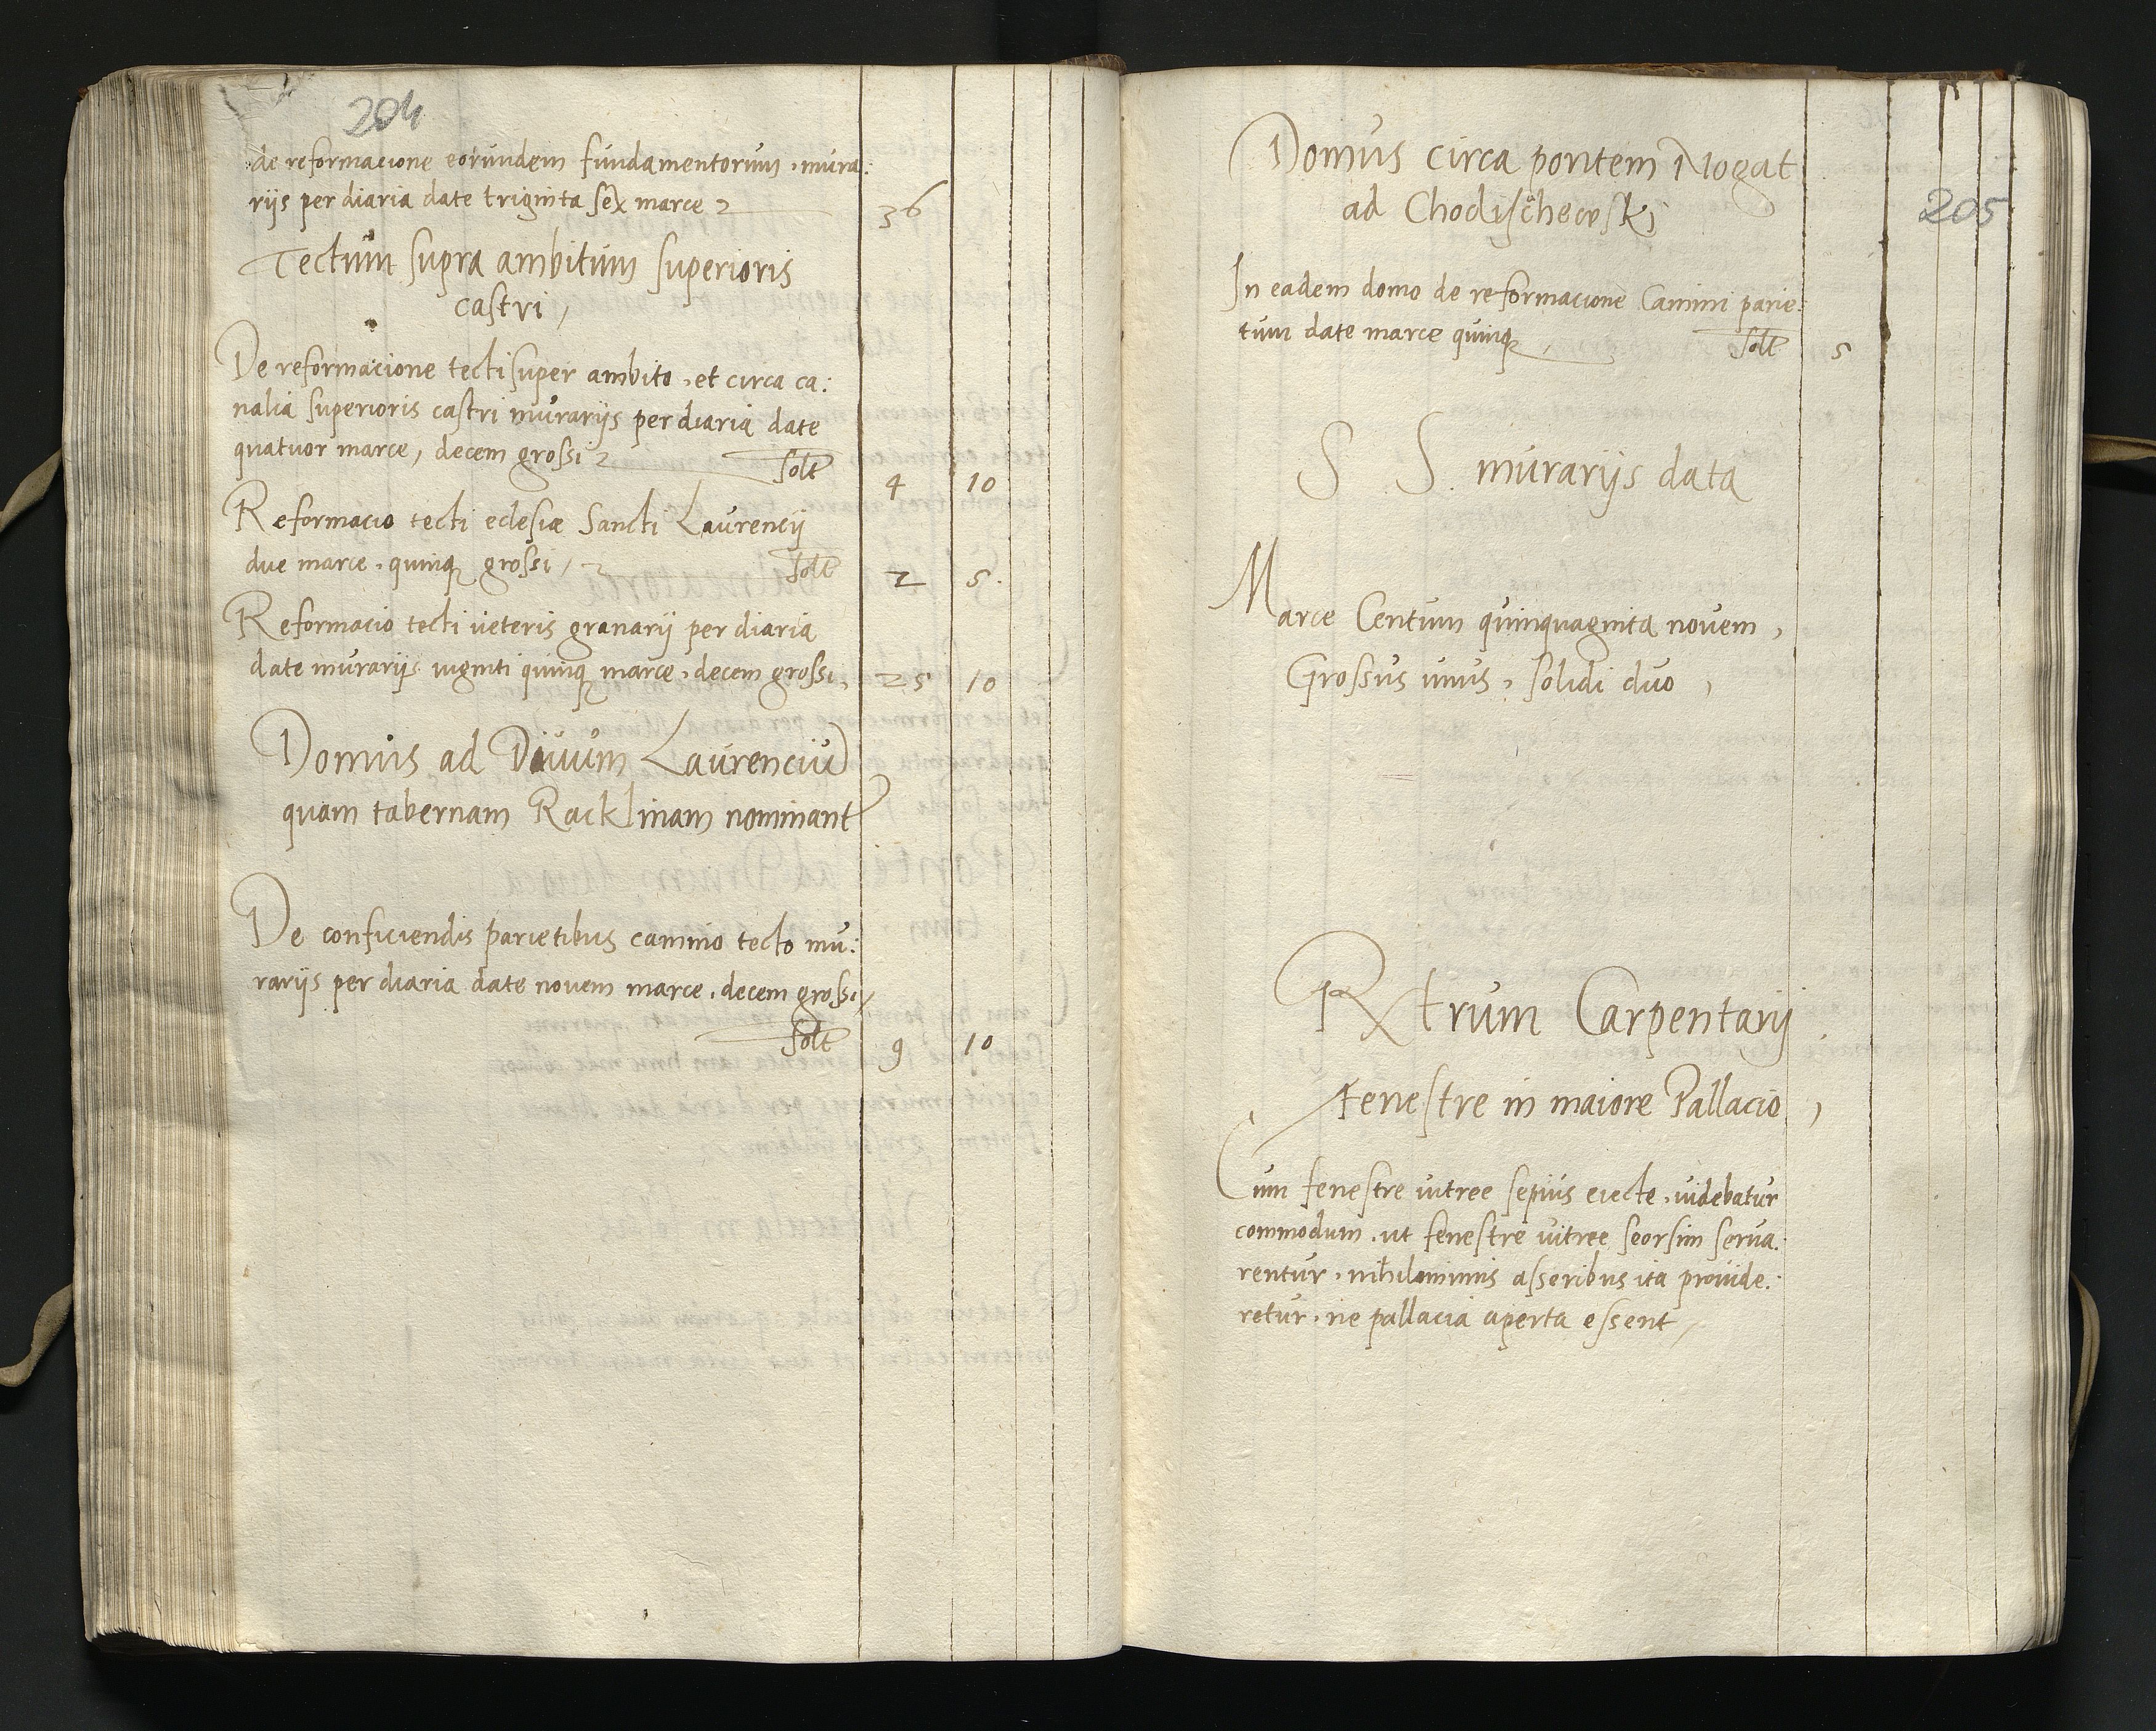 204
de reformacione eorundem fundamentorum, mura:
rijs per diaria date triginta sex marce 36
Tectum supra ambitum superioris
castri,
De reformacione tecti super ambito, et circa ca:
nalia superioris castri murarijs per diaria date
quatuor marce, decem grossi Solt 4 10
Reformacio tecti eclesiæ Sancti Laurencij
due marce, quinq grossi, Solt 2 5.
Reformacio tecti veteris granarij per diaria
date murarijs viginti quinq marce, decem grossi, 25 10
Domus ad Divum Laurenciu
quam tabernam Racklinam nominant
De conficiendis parietibus camino tecto mu:
rarijs per diaria date novem marce, decem grossi,
Solt 9 10
205
Domus circa pontem Nogat
ad Chodischewski
In eadem domo de reformacione Camini parie:
tum date marce quinq, Solt 5
S S. murarijs data
Marce Centum quinquaginta novem,
Grossus unus, solidi duo,
Rxtrum Carpentarij
Fenestre in maiore Pallacio,
Cum fenestre vitree sepius eiecte, videbatur
commodum, ut fenestre vitree seorsim serva:
rentur, nihilominus asseribus ita provide:
retur, ne pallacia aperta essent,